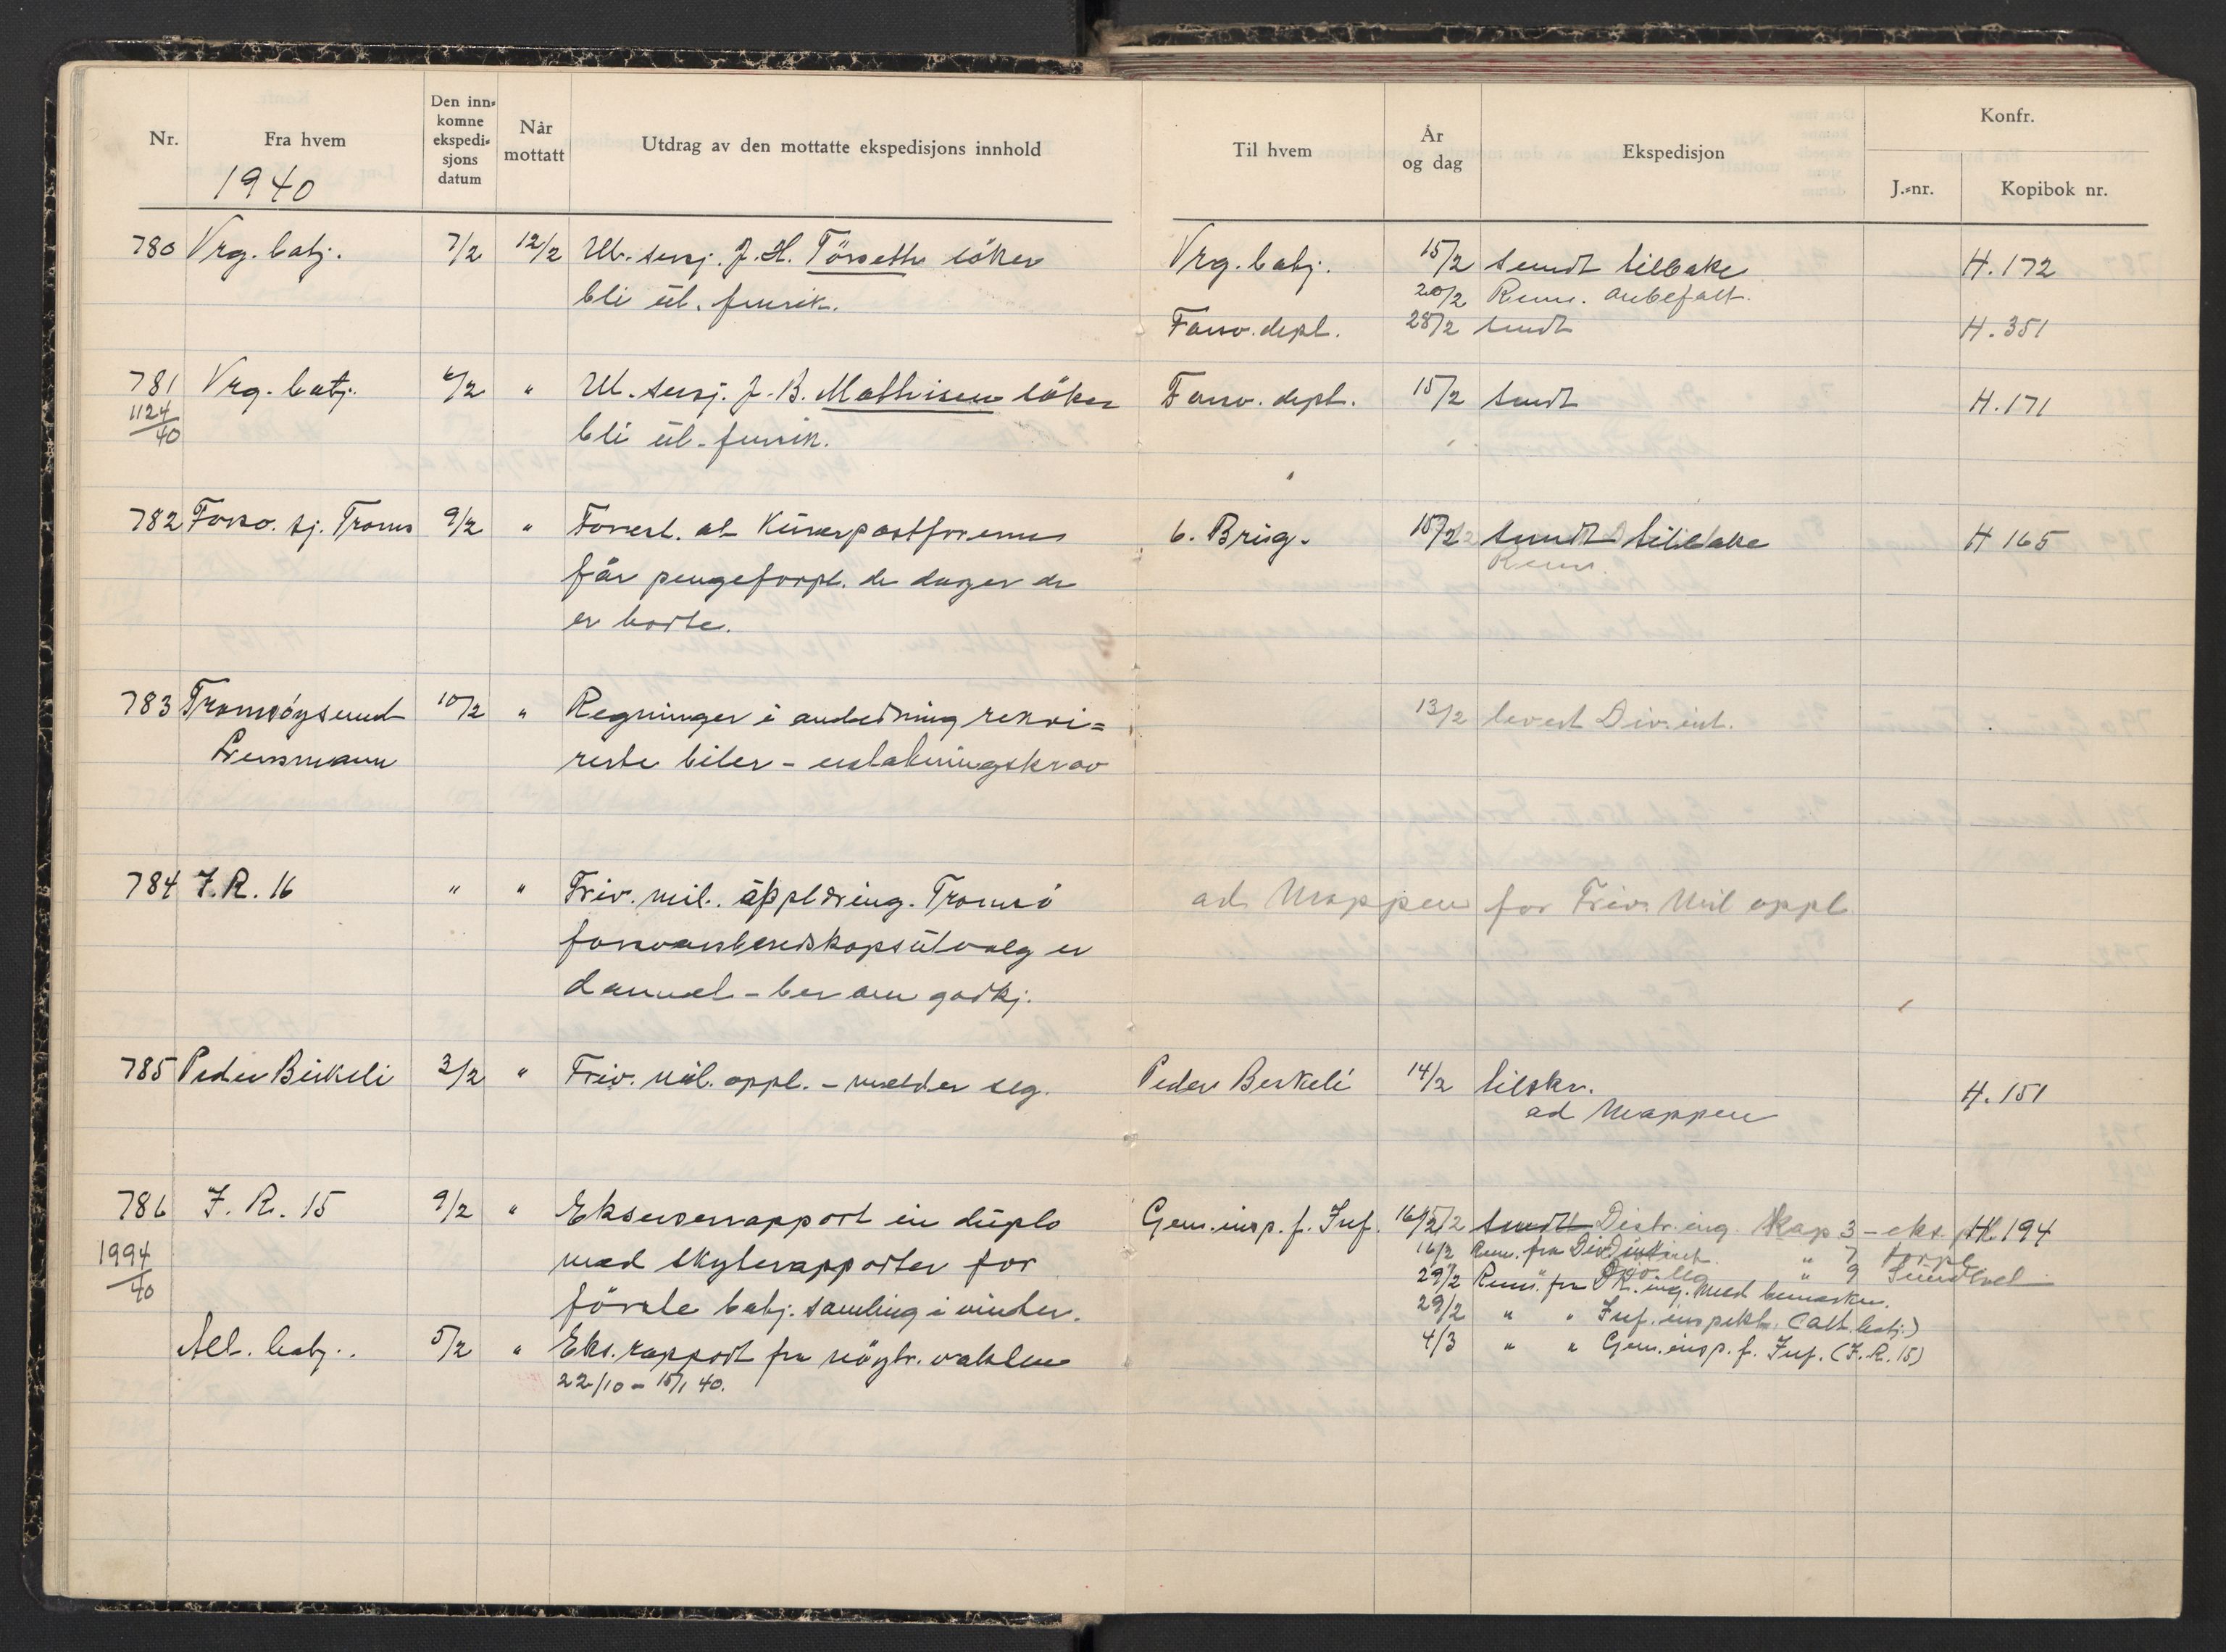 Nr. Fra hvem Den inn-komne ekspedi-sjons datum Når mottatt Utdrag av den mottatte ekspedisjons innhold Til hvem År og dag Ekspedisjon Konfr. J.-nr. Kopibok nr.
1940
780 Vrg. batj. 7/2 12/2 Ut. sersj. J. H. Törseth söker Vrg. batj. 15/2 sendt tilbake H. 172
bli út. fenrik. 20/2 Rem. anbefalt.
Forsv. dept. 28/2 sendt H. 351
781 Vrg. batj. 6/2 " Ut. sersj. J. B. Mathisen söker Forsv. dept. 15/2 sendt H. 171
1124/40 bli út. fenrik.
782 Forsv. sj. Troms 9/2 " Forest. at Kurerpostförerne 6. Brig. 15/2 sendt tilbake H 165
får pengeforpl. de dager de Rem.
er borte.
783 Tromsöysund 10/2 " Regninger i anledning rekvi- 13/2 levert Div.int.
Lensmann rerte biler - erstatningskrav
784 I.R. 16 " " Friv. mil. opplæring. Tromsö ad Mappen for Friv. Mil oppl.
forsvarsberedskapsutvalg er
dannet - ber om godkj.
785 Peder Berkeli 3/2 " Friv. mil. oppl. - melder seg. Peder Berkeli 14/2 tilskr. H. 151
ad Mappen
786 I. R. 15 9/2 " Ekserserrapport in duplo Gen. insp. f. Inf. 16/2 sendt Distr. ing. Kap 3 - eks. H. 194
1994/40 med skyterapporter for 16/2 Rem. fra Div. int. " 7 forpl.
förste batj. samling i vinter. 29/2 Rem. fra D.K. ing. med bemerkn. " 9 Sundhet
29/2 " " Inf. inspekt. (Alt. batj.)
Alt. batj. 5/2 " Eks. rapport fra nöytr. vakten 4/3 " " Gen. insp. f. Inf. (I. R. 15)
22/10 - 15/1 40.